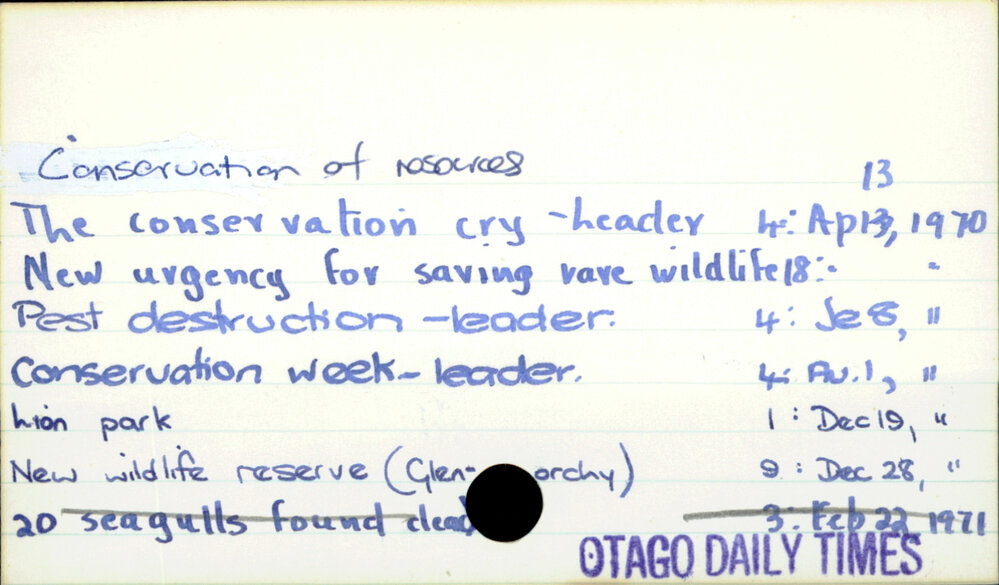 Conservation of resources 13
The conservation cry -header 4: Ap13, 1970
New urgency for saving rare wildlife 18: "
Pest destruction -leader. 4: Je 8, "
Conservation week- leader. 4: Au. 1, "
Lion park 1: Dec 19, "
New wildlife reserve (Glen- orchy) 9: Dec 28, "
20 seagulls found dead 3: Feb 22 1971
OTAGO DAILY TIMES